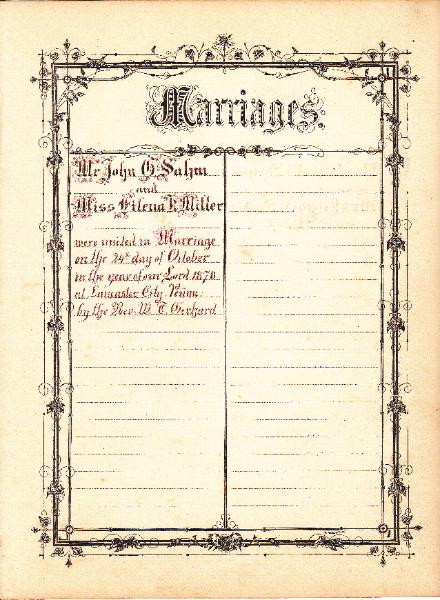 Marriages.
Mr John G. Sahm
and
Miss Eilena F. Miller
were united in Marriage
on the 24th day of October
in the year of our Lord 1878
at Lancaster City Penna.
by the Rev. W. T. Gerhard